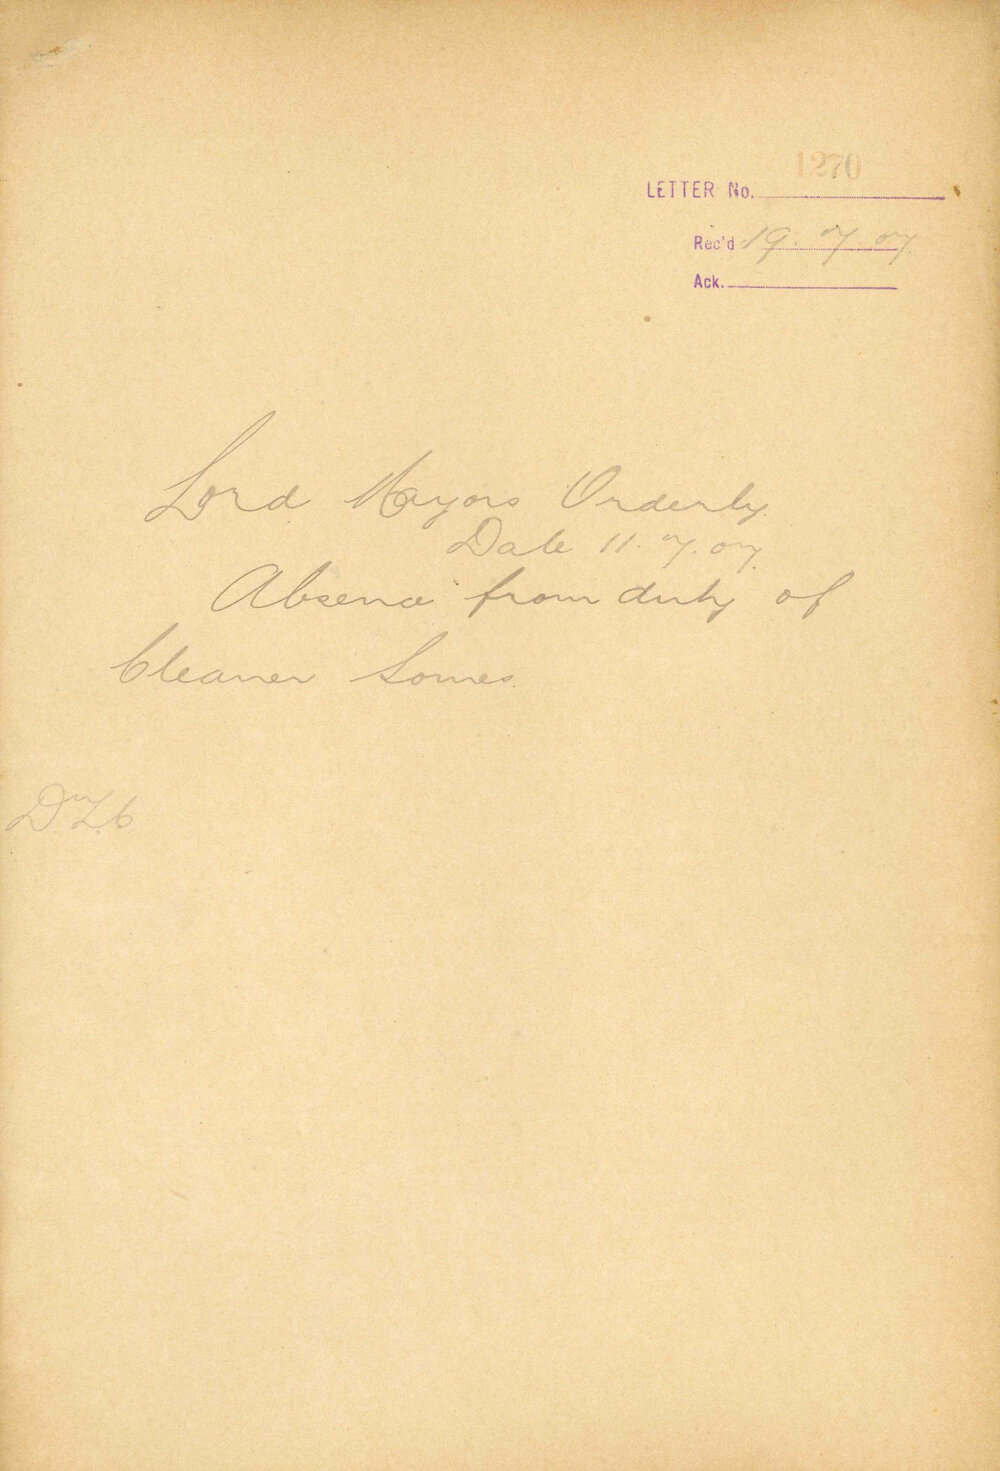 1270
LETTER No.
Rec'd 19. 7 07
Ack.
Lord Mayors Orderly.
Date 11. 7. 07.
Absence from duty of
Cleaner Somes.